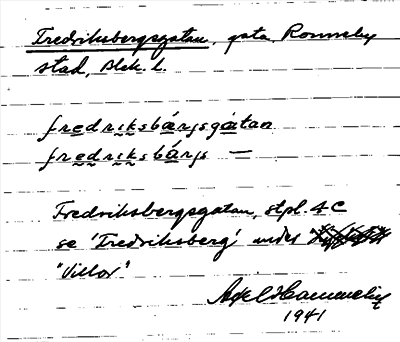 Fredriksbergsgatan, gata, Ronneby
stad, Blek. l.
fredriksbärjsgatan
fredriksbärjs —
Fredriksbergsgatan, stpl. 4C
se 'Fredriksberg' under
"Villor"
Axel
1941